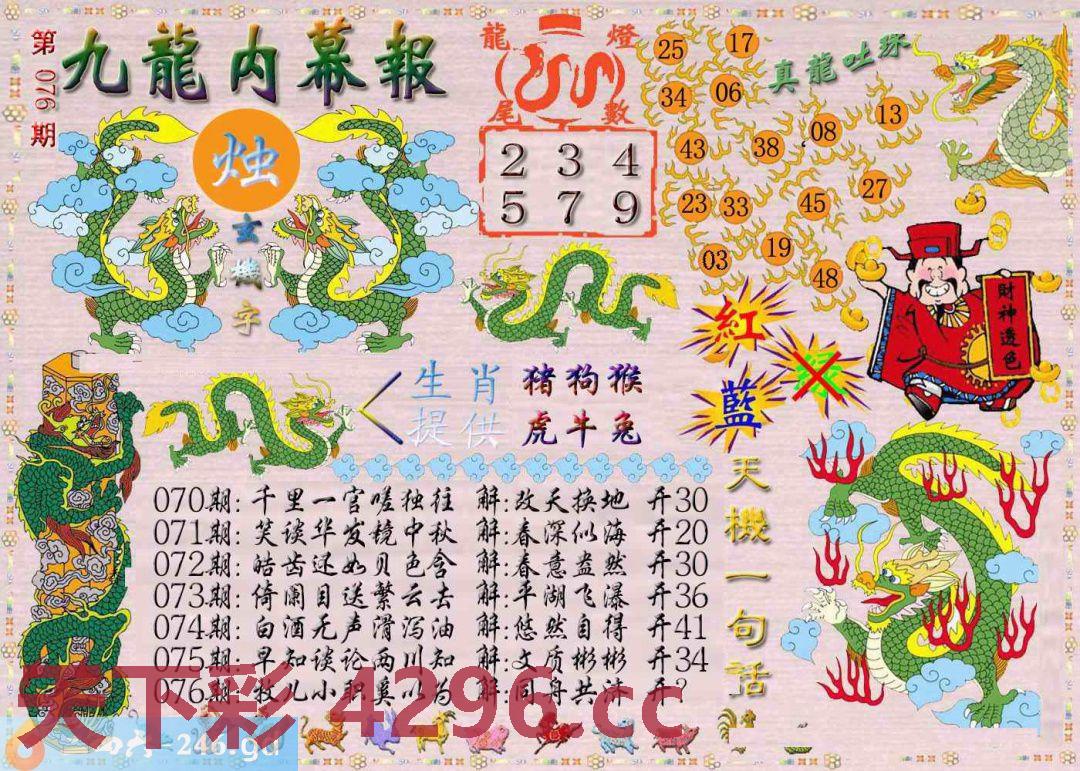 第076期
九龍内幕報
烛
玄機字
龍燈
尾數
2 3 4
5 7 9
真龍吐珠
25 17
34 06
43 38 08 13
23 33 45 27
03 19 48
財神透色
紅
綠
藍
生肖 猪狗猴
提供 虎牛兔
天機一句话
070期:千里一官嗟独往 解:改天换地 开30
071期:笑谈华发镜中秋 解:春深似海 开20
072期:皓齿还如贝色含 解:春意盎然 开30
073期:倚阑目送繁云去 解:平湖飞瀑 开36
074期:白酒无声滑泻油 解:悠然自得 开41
075期:早知谈论两川知 解:文质彬彬 开34
076期:牧儿小职奚以为 解:同舟共济 开?
天下彩 4296.cc
=246.gd